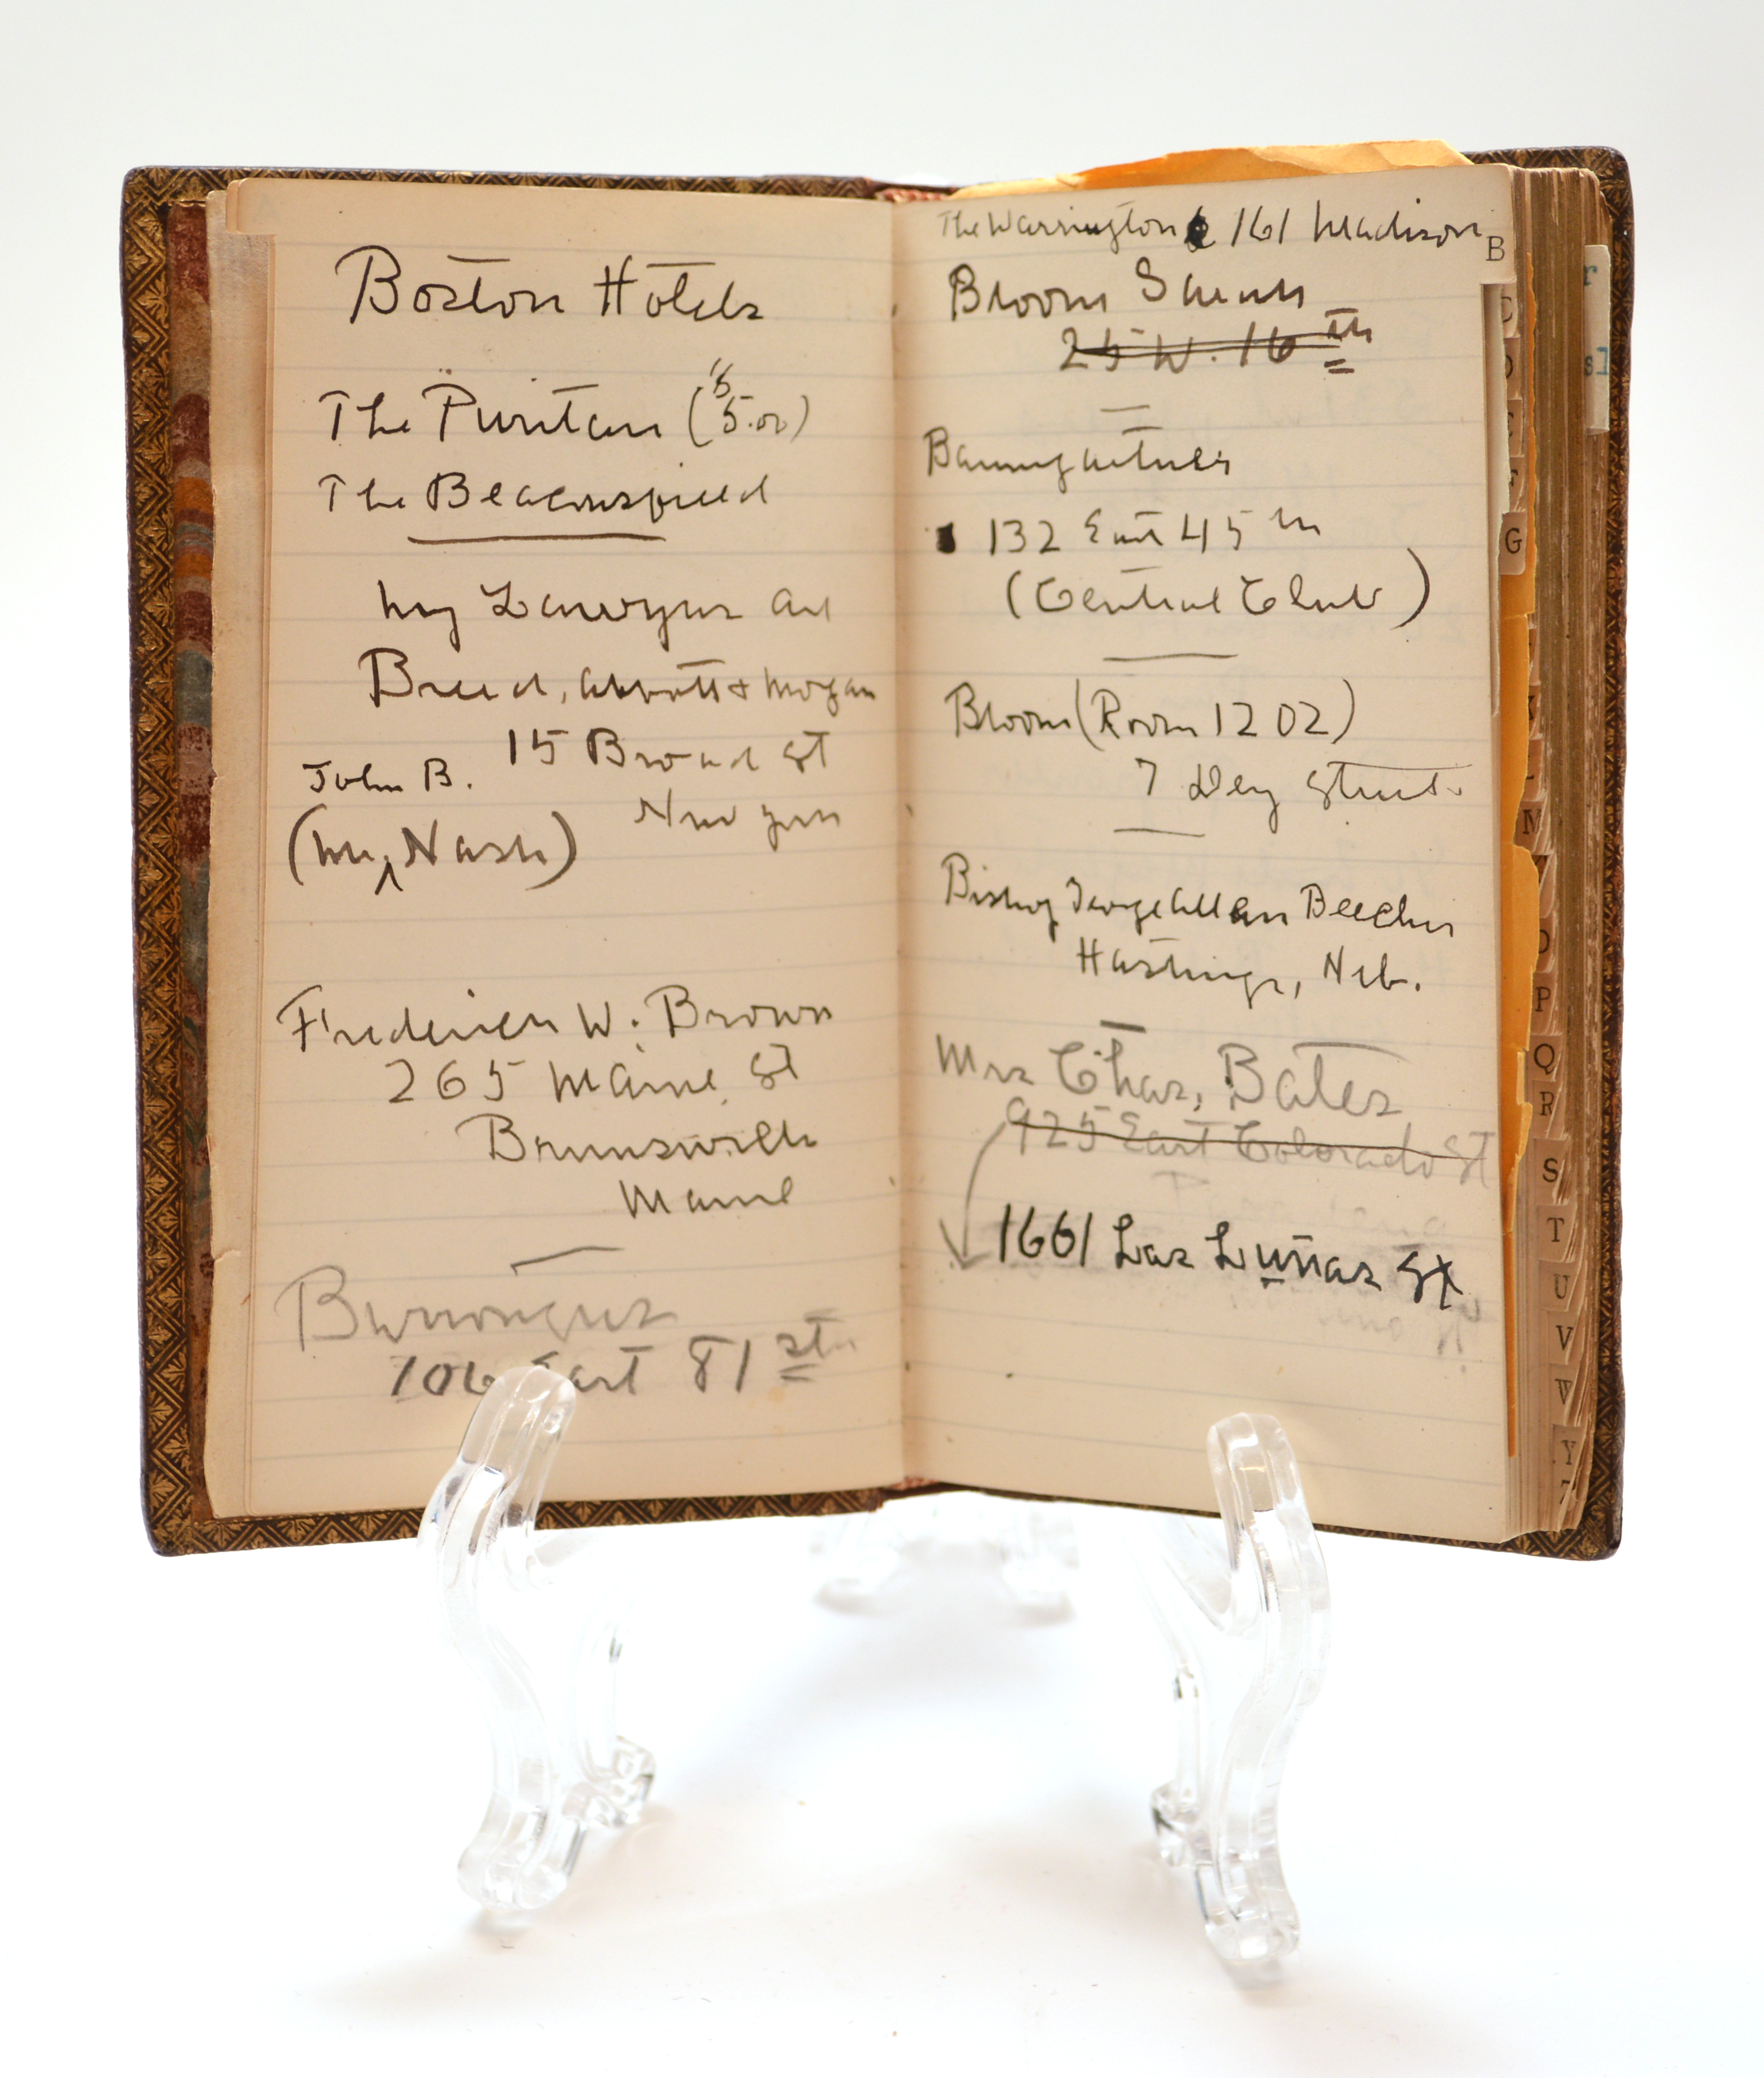 Boston Hotels
The Puritan ($5.00)
The Beaconsfield
My Lawyers are
Breed, Abbott & Morgan
15 Broad St
New York
John B.
(Mr, Nash)
Frederick W. Brown
265 Maine St
Brunswick
Maine
Burroughs
106 East 81st
The Warrington 161 Madison
B
Bloom
25 W. 16th
Baumgartner
132 East 45th
(Central Club)
Bloom (Room 1202)
7 Dey Street
Bishop George Allen Beecher
Hastings, Neb.
Mrs Chas, Bates
925 East Colorado St
1661 Las Lunas St
C
G
N
O
P
Q
R
S
T
U
V
W
Y
Z